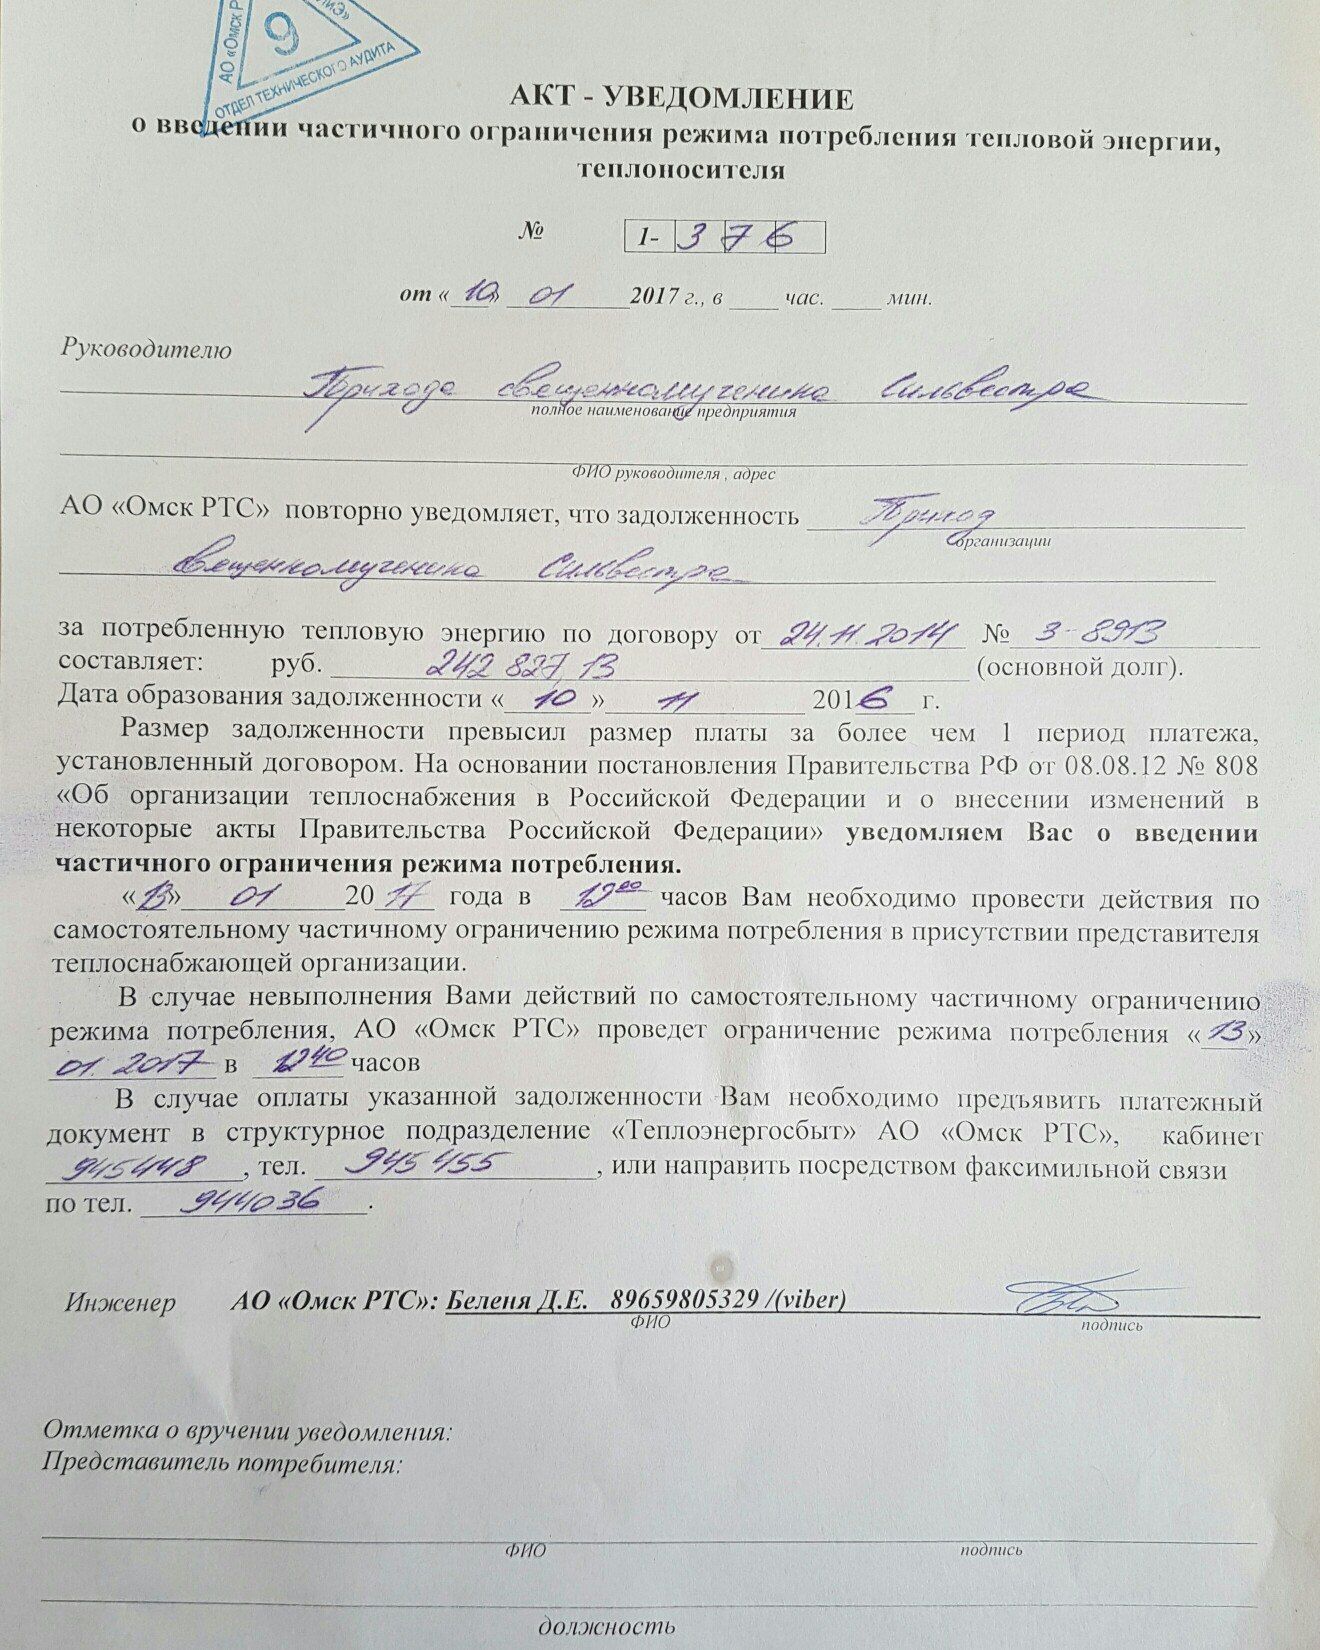 АО «Омск Р
9
ОТДЕЛ ТЕХНИЧЕСКОГО АУДИТА
АКТ - УВЕДОМЛЕНИЕ
о введении частичного ограничения режима потребления тепловой энергии,
теплоносителя
№ 1- 3 7 6
от «10» 01 2017 г., в ____ час. ____ мин.
Руководителю
Прихода священномученика Сильвестра
полное наименование предприятия
ФИО руководителя , адрес
АО «Омск РТС» повторно уведомляет, что задолженность Приход
организации
священномученика Сильвестра
за потребленную тепловую энергию по договору от 24.11.2014 № 3-8913
составляет: руб. 242 827,13 (основной долг).
Дата образования задолженности «10» 11 2016 г.
Размер задолженности превысил размер платы за более чем 1 период платежа,
установленный договором. На основании постановления Правительства РФ от 08.08.12 № 808
«Об организации теплоснабжения в Российской Федерации и о внесении изменений в
некоторые акты Правительства Российской Федерации» уведомляем Вас о введении
частичного ограничения режима потребления.
«13» 01 2017 года в 12⁰⁰ часов Вам необходимо провести действия по
самостоятельному частичному ограничению режима потребления в присутствии представителя
теплоснабжающей организации.
В случае невыполнения Вами действий по самостоятельному частичному ограничению
режима потребления, АО «Омск РТС» проведет ограничение режима потребления «13»
01. 2017 в 12⁴⁰ часов
В случае оплаты указанной задолженности Вам необходимо предъявить платежный
документ в структурное подразделение «Теплоэнергосбыт» АО «Омск РТС», кабинет
945448, тел. 945455, или направить посредством факсимильной связи
по тел. 944036.
Инженер АО «Омск РТС»: Беленя Д.Е. 89659805329 /(viber)
ФИО подпись
Отметка о вручении уведомления:
Представитель потребителя:
ФИО подпись
должность